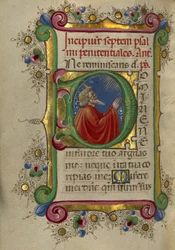 Incipiunt septem psal
mi penitentiales. Ant.
Ne reminiscaris. d. ps
D
O
M
I
N
E
N
E
in furore tuo arguas
me: neque in ira tua co
ripias me. Misere